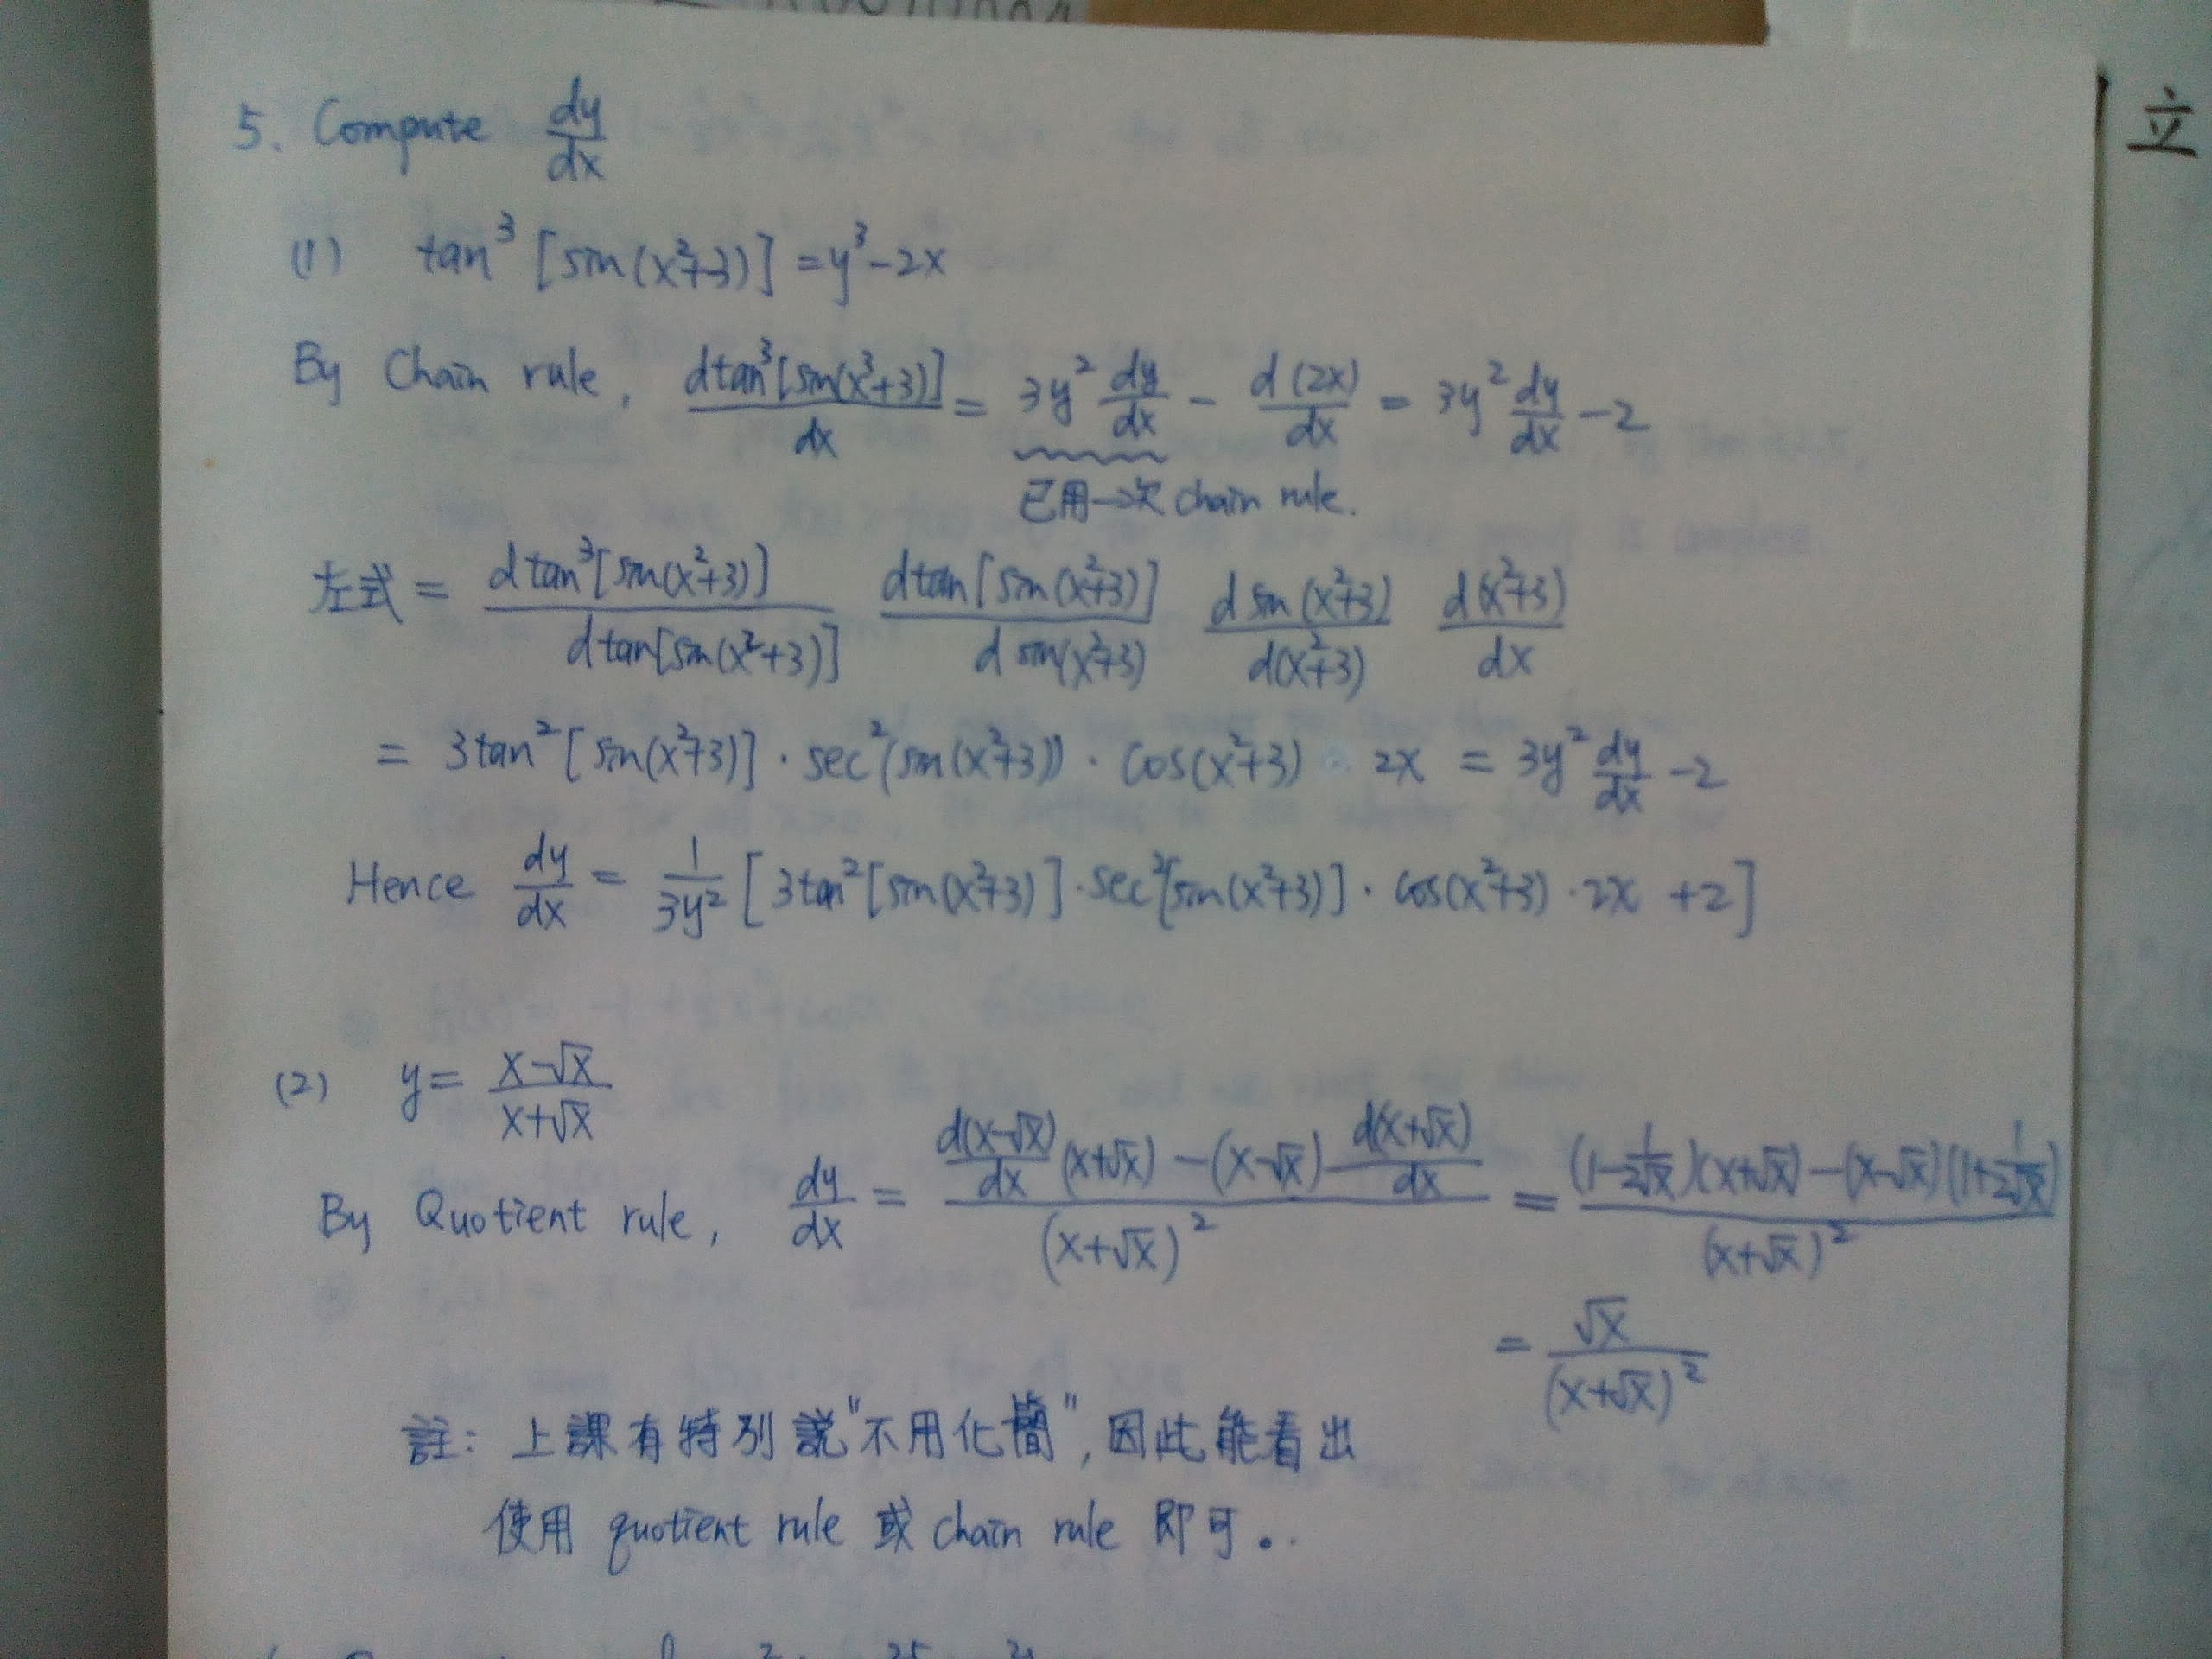 5. Compute dy/dx
(1) tan³[sin(x²+3)] = y³-2x
By Chain rule, dtan³[sin(x³+3)]/dx = 3y² dy/dx - d(2x)/dx = 3y² dy/dx - 2
已用一次 chain rule.
左式 = dtan³[sin(x²+3)]/dtan[sin(x²+3)] dtan[sin(x²+3)]/dsin(x²+3) dsin(x²+3)/d(x²+3) d(x²+3)/dx
= 3tan²[sin(x²+3)]·sec²(sin(x²+3))·cos(x²+3)·2x = 3y² dy/dx - 2
Hence dy/dx = 1/3y² [3tan²[sin(x²+3)]·sec²[sin(x²+3)]·cos(x²+3)·2x +2]
(2) y = x-√x/x+√x
By Quotient rule, dy/dx = d(x-√x)/dx (x+√x) - (x-√x) d(x+√x)/dx / (x+√x)² = (1-1/2√x)(x+√x)-(x-√x)(1+1/2√x) / (x+√x)²
= √x/(x+√x)²
註: 上課有特別說"不用化簡", 因此能看出
使用 quotient rule 或 chain rule 即可。
立